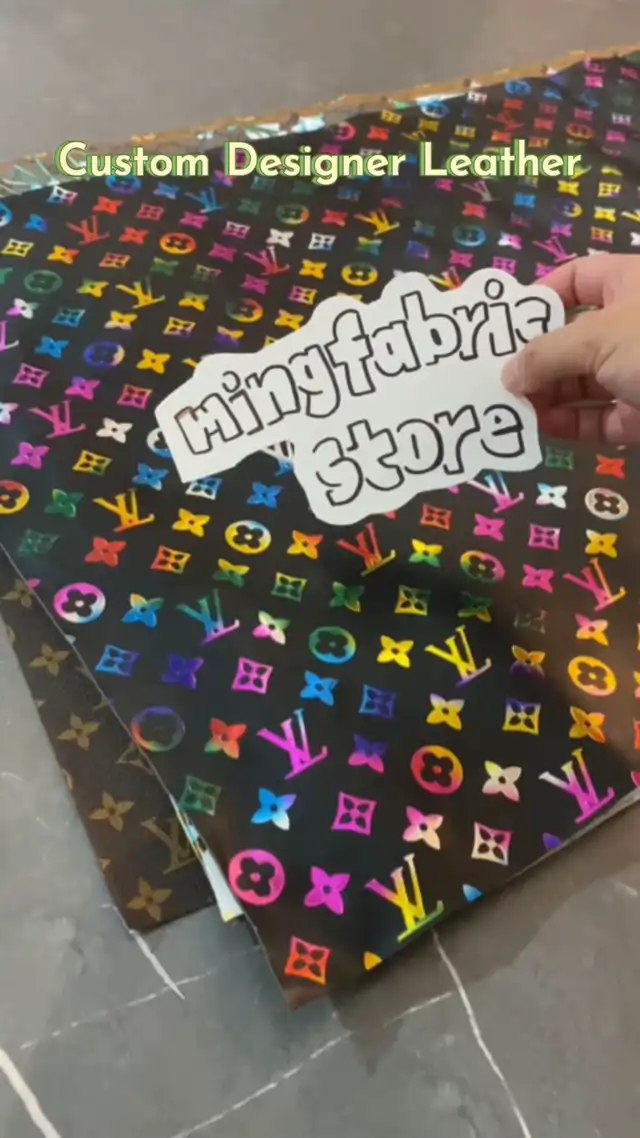 Custom Designer Leather
mingfabric
store